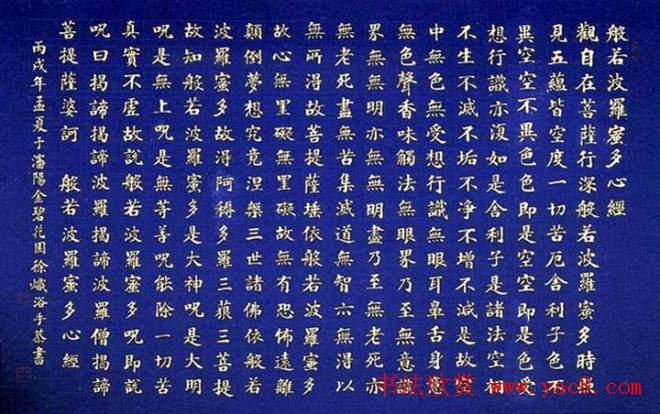 般若波羅蜜多心經
觀自在菩薩行深般若波羅蜜多時照
見五蘊皆空度一切苦厄舍利子色不
異空空不異色色即是空空即是色受
想行識亦復如是舍利子是諸法空相
不生不滅不垢不淨不增不減是故空
中無色無受想行識無眼耳鼻舌身意
無色聲香味觸法無眼界乃至無意識
界無無明亦無無明盡乃至無老死亦
無老死盡無苦集滅道無智亦無得以
無所得故菩提薩埵依般若波羅蜜多
故心無罣礙無罣礙故無有恐怖遠離
顛倒夢想究竟涅槃三世諸佛依般若
波羅蜜多故得阿耨多羅三藐三菩提
故知般若波羅蜜多是大神呪是大明
呪是無上呪是無等等呪能除一切苦
真實不虛故說般若波羅蜜多呪即說
呪曰揭諦揭諦波羅揭諦波羅僧揭諦
菩提薩婆訶 般若波羅蜜多心經
丙戌年孟夏于瀋陽金碧花園徐熾洛手恭書
书法欣赏 www.yac8.com